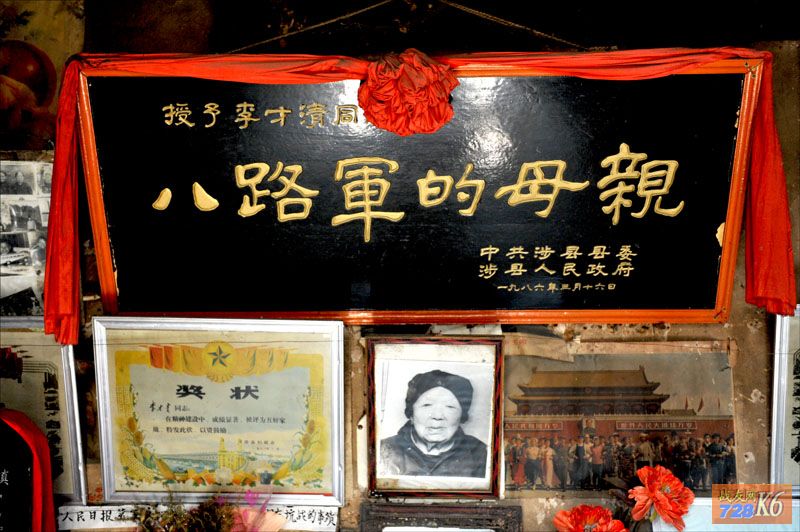 授予李才清同
八路軍的母親
中共涉县县委
涉县人民政府
一九八六年三月十六日
奖状
同志：
在精神建设中，成绩显著，被评为五好家
庭，特发此状，以资鼓励。
人民日报
抗战的事
战友网
728
K6